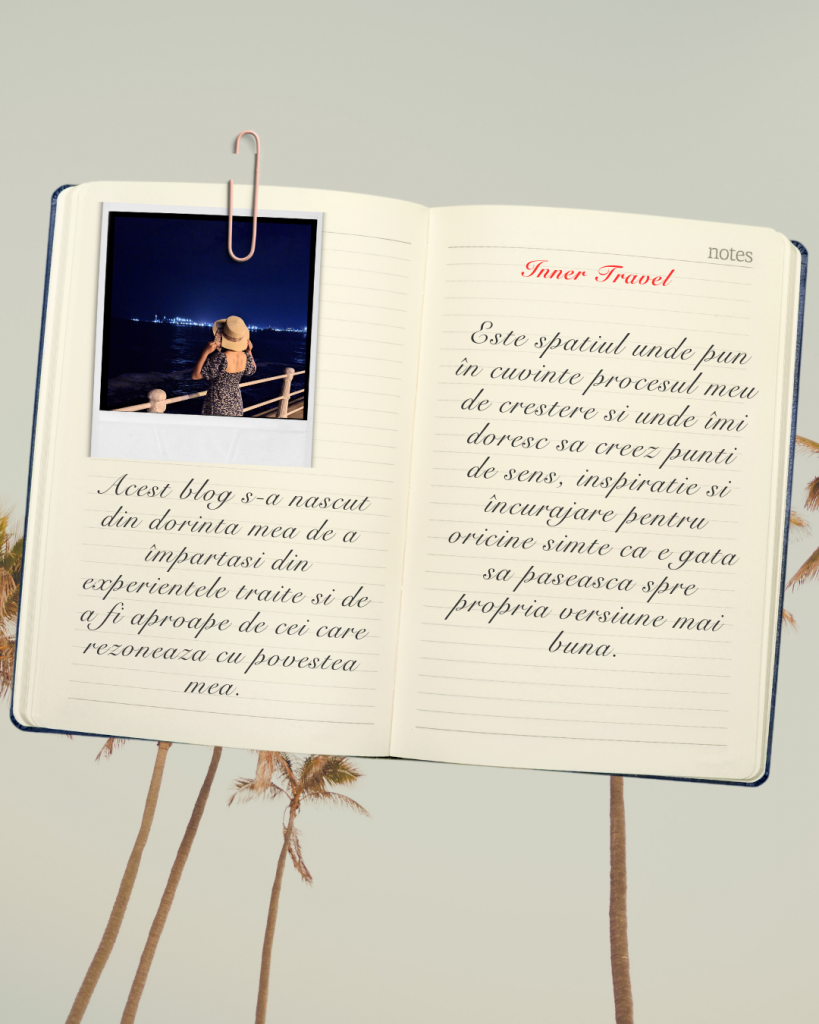 Acest blog s-a nascut
din dorinta mea de a
împartasi din
experientele traite si de
a fi aproape de cei care
rezoneaza cu povestea
mea.
notes
Inner Travel
Este spatiul unde pun
în cuvinte procesul meu
de crestere si unde îmi
doresc sa creez punti
de sens, inspiratie si
încurajare pentru
oricine simte ca e gata
sa paseasca spre
propria versiune mai
buna.